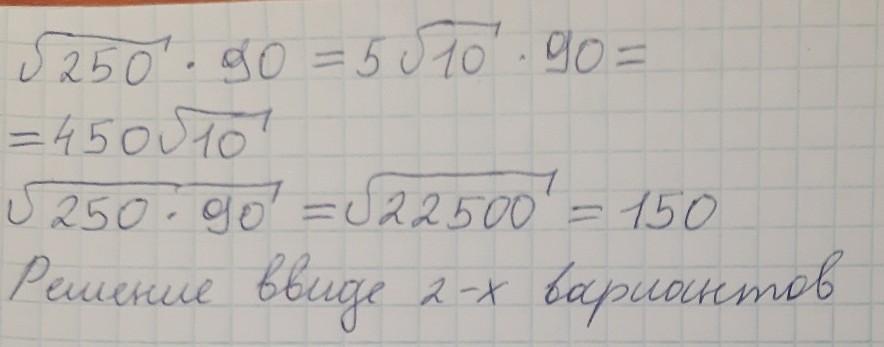 √250 · 90 = 5√10 · 90 =
= 450√10
√250 · 90 = √22500 = 150
Решение ввиде 2-х вариантов